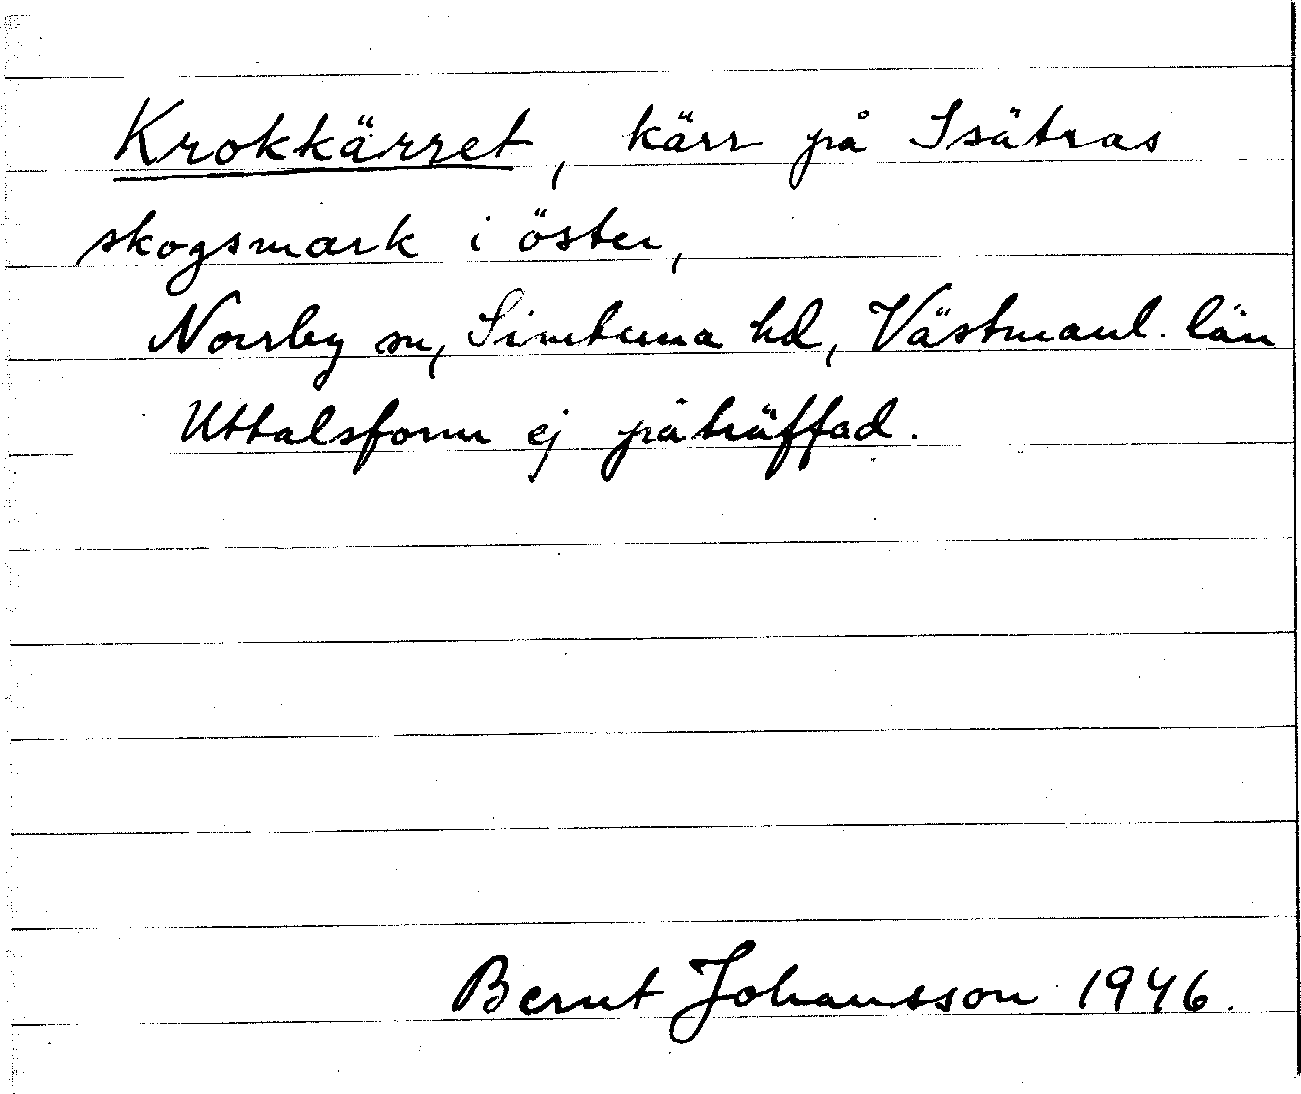 Krokkärret, kärr på Isätras
skogsmark i öster,
Norrby sn, Simtuna hd, Västmanl. län
Uttalsform ej påträffad.
Bernt Johansson 1946.